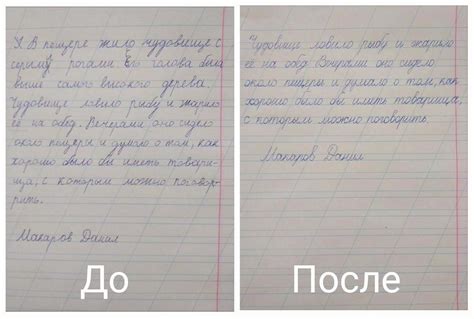 У. В пещере жило чудовище с
серыми рогами. Его голова была
выше самого высокого дерева.
Чудовище ловило рыбу и жарило
её на обед. Вечерами оно сидело
около пещеры и думало о том, как
хорошо было бы иметь товари-
ща, с которым можно поговор-
рить.
Макаров Данил
До
Чудовище ловило рыбу и жарило
её на обед. Вечерами оно сидело
около пещеры и думало о том, как
хорошо было бы иметь товарища,
с которым можно поговорить.
Макаров Данил
После